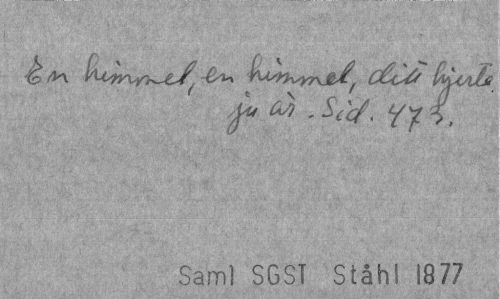 En himmel, en himmel, ditt hjerta
ju är. Sid. 473.
Saml SGST Ståhl 1877